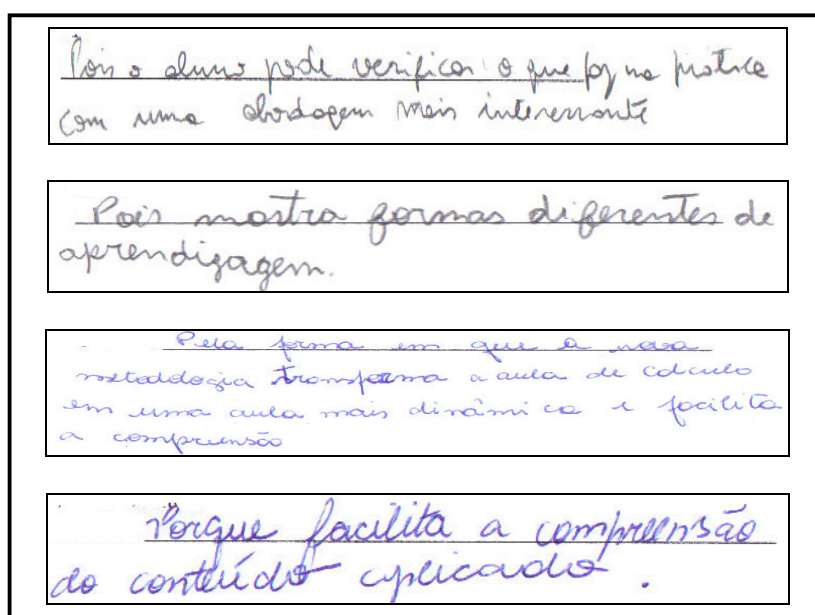 Pois o aluno pode verificar o que faz na prática
com uma abordagem mais interessante
Pois mostra formas diferentes de
aprendizagem.
Pela forma em que a nova
metodologia transforma a aula de calculo
em uma aula mais dinâmica e facilita
a compreensão
Porque facilita a compreensão
do conteúdo aplicado.